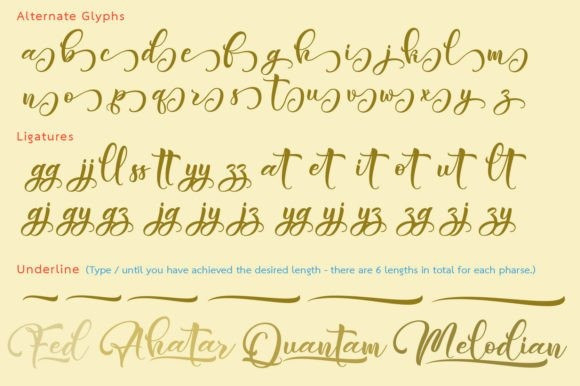 Alternate Glyphs
a b c d e f g h i j k l m
n o p q r s t u v w x y z
Ligatures
gg jj ll ss tt yy zz at et it ot ut lt
gj gy gz jg jy jz yg yj yz zg zj zy
Underline (Type / until you have achieved the desired length - there are 6 lengths in total for each pharse.)
Fed Ahatar Quantam Melodian